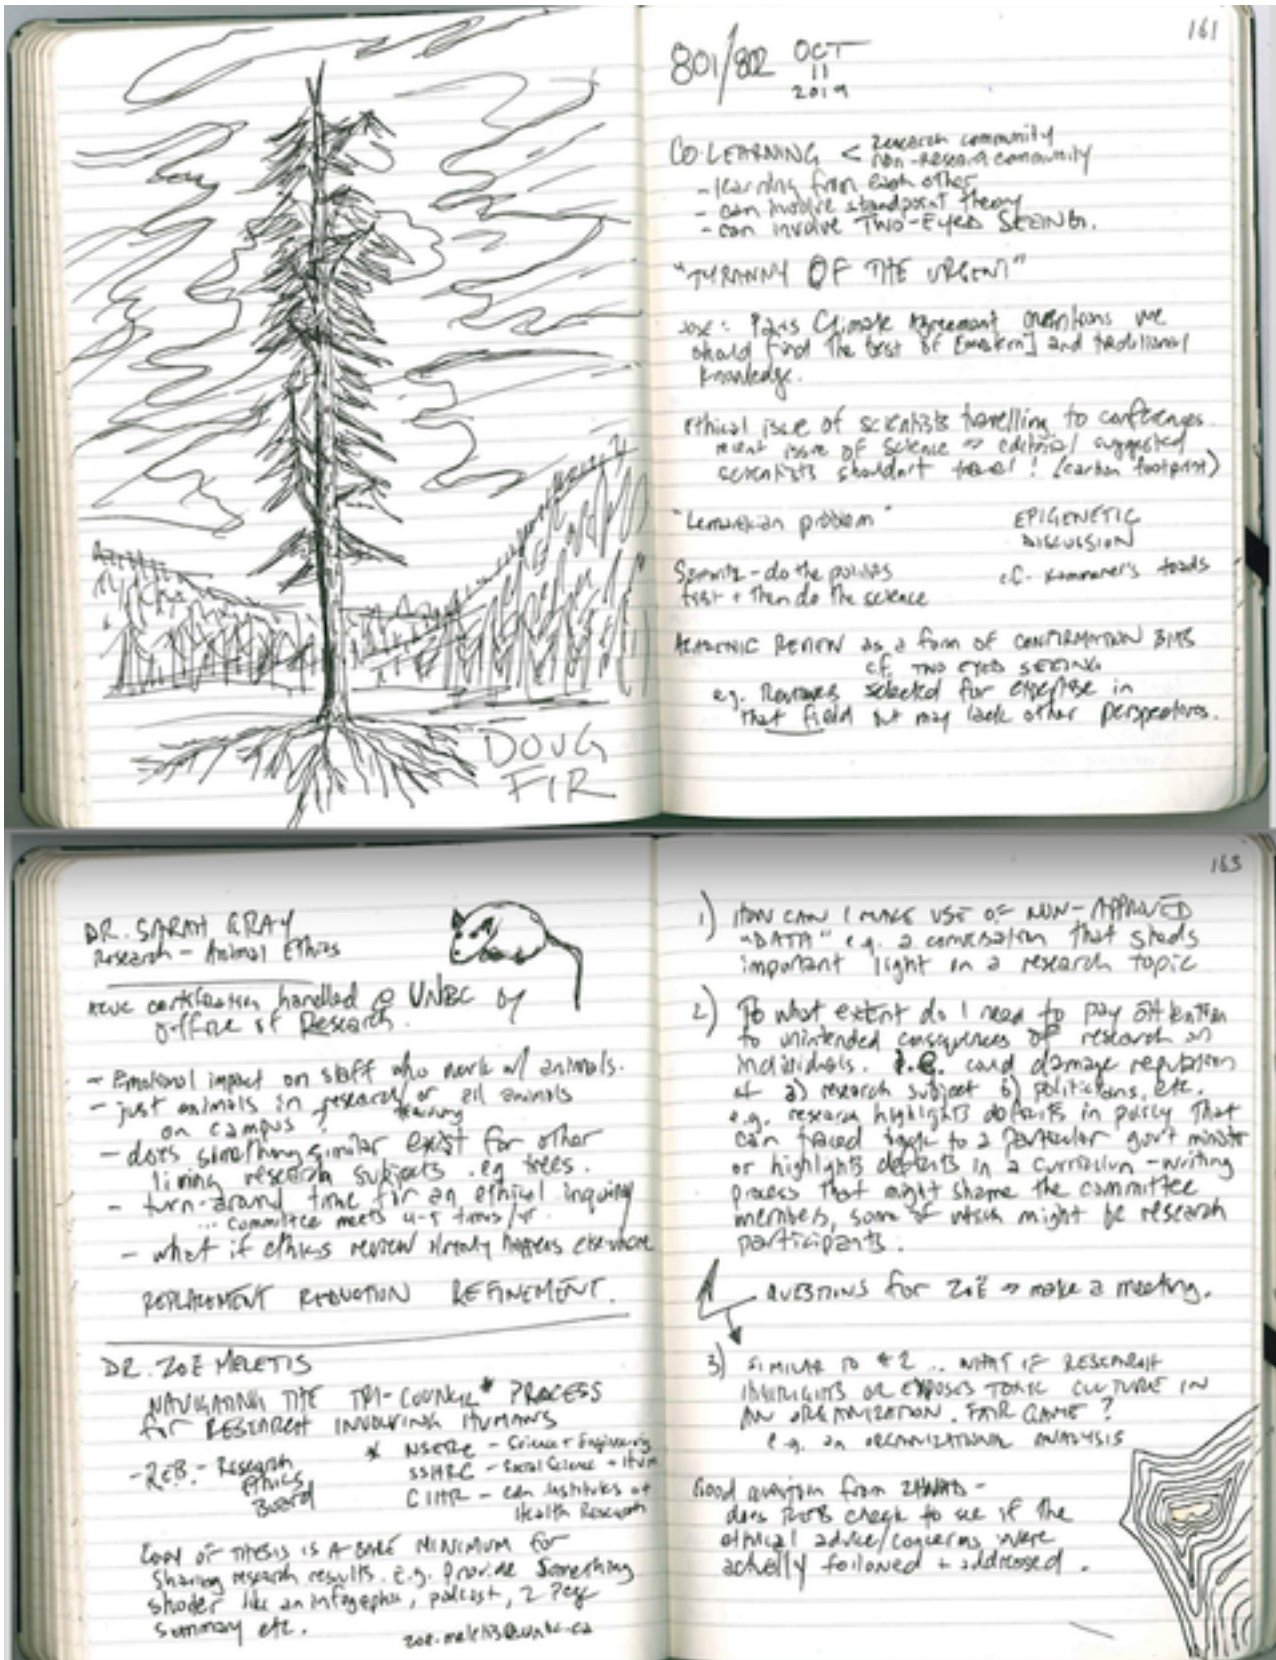 161
801/802 OCT
11
2019
CO-LEARNING < research community
non-research community
- learning from each other
- can involve standpoint theory
- can involve TWO-EYED SEEING.
"TYRANNY OF THE URGENT"
Paris Climate Agreement mentions we
should find the best of [western] and traditional
knowledge.
Ethical issue of scientists travelling to conferences.
recent issue of Science ⇒ editorial suggested
scientists shouldn't travel! (carbon footprint)
"Lamarckian problem"
EPIGENETIC
DISCUSSION
cf. Kammerer's toads
- do the politics
first + then do the science
ACADEMIC REVIEW as a form of CONFIRMATION BIAS
cf. TWO EYED SEEING
e.g. Reviewers selected for expertise in
that field but may lack other perspectives.
DOUG
FIR
DR. SARAH GRAY
Research - Animal Ethics
certification handled @ UNBC by
office of Research.
- Emotional impact on staff who work w/ animals.
- just animals in research/ or all animals
training
on campus?
- does something similar exist for other
living research subjects. eg trees.
- turn-around time for an ethical inquiry
... committee meets 4-5 times/yr.
- what if ethics review already happens elsewhere
REPLACEMENT REDUCTION REFINEMENT.
DR. ZOË MELETIS
NAVIGATING THE TRI-COUNCIL* PROCESS
for RESEARCH INVOLVING HUMANS
- REB - Research
Ethics
Board
* NSERC - Science + Engineering
SSHRC - Social Science + Hum
CIHR - Can Institutes of
Health Research
COPY OF THESIS IS A BARE MINIMUM for
sharing research results. E.g. Provide something
shorter like an infographic, podcast, 2 page
summary etc.
zoe.meletis@unbc.ca
163
1) HOW CAN I MAKE USE OF NON-APPROVED
"DATA" e.g. a conversation that sheds
important light on a research topic
2) To what extent do I need to pay attention
to unintended consequences of research on
individuals. I.E. could damage reputation
of a) research subject b) politicians, etc.
e.g. research highlights deficits in policy that
can traced back to a particular gov't minister
or highlights deficits in a curriculum-writing
process that might shame the committee
members, some of which might be research
participants.
QUESTIONS for ZOË ⇒ make a meeting.
3) SIMILAR TO #2 .. WHAT IF RESEARCH
HIGHLIGHTS OR EXPOSES TOXIC CULTURE IN
AN ORGANIZATION. FAIR GAME?
e.g. an ORGANIZATIONAL ANALYSIS
Good question from
does REB check to see if the
ethical advice/concerns were
actually followed + addressed.